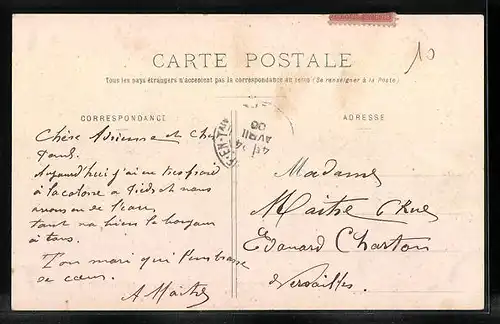 10
CARTE POSTALE
Tous les pays étrangers n'acceptent pas la correspondance au recto (Se renseigner à la Poste)
CORRESPONDANCE
ADRESSE
Chère Adrienne et Ch
Aujourd'hui j'ai eu tres froid
à la caserne à Pieds et nous
avons eu de l'eau,
tant na hiers le bonjour
à tous.
Ton mari qui t'embrasse
de cœur.
A Maitre
Madame
Maitre Rue
Edouard Charton
Versailles.
AVRIL
06